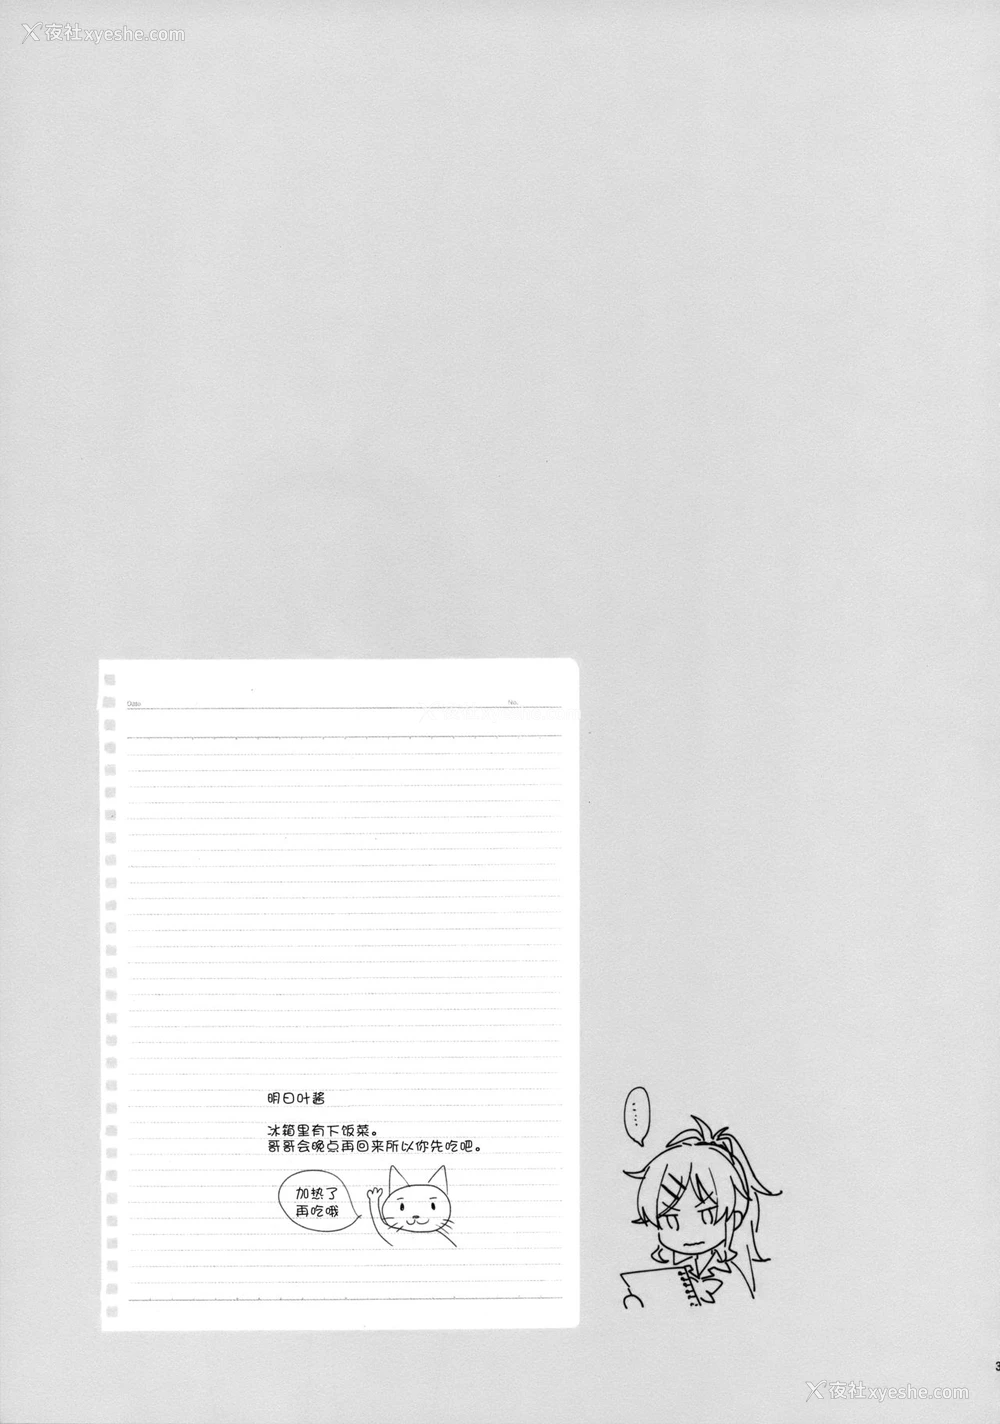 夜社xyeshe.com
Date
No.
明日叶酱
冰箱里有下饭菜。
哥哥会晚点再回来所以你先吃吧。
加热了
再吃哦
……
3
夜社xyeshe.com